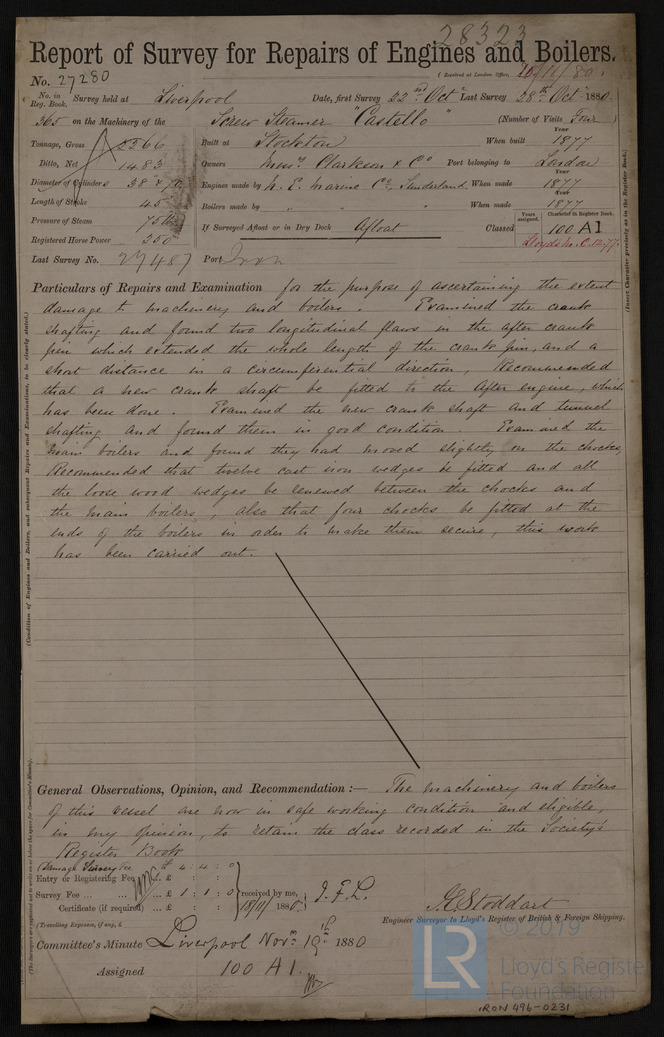 28323
Report of Survey for Repairs of Engines and Boilers.
No. 27280
(Received at London Office, 18/80.
No. in Reg. Book. Survey held at Liverpool Date, first Survey 22nd Octr Last Survey 28th Octr 1880.
365 on the Machinery of the Screw Steamer "Castello" (Number of Visits Four)
Tonnage, Gross 2266 Built at Stockton When built Year 1877
Ditto, Net 1483 Owners Messrs Clarkson & Co Port belonging to London
Diameter of Cylinders 38" & 70 Engines made by N. E. Marine Co, Sunderland When made Year 1877
Length of Stroke 45 Boilers made by " " " When made Year 1877
Pressure of Steam 75 lbs If Surveyed Afloat or in Dry Dock Afloat Classed Years assigned. Character in Register Book. 100 A1
Registered Horse Power 250 Lloyds M.C. 12.77
Last Survey No. 27487 Port Iron
(Insert Character precisely as in the Register Book.)
Particulars of Repairs and Examination for the purpose of ascertaining the extent
damage to machinery and boilers. Examined the crank
shafting and found two longitudinal flaws in the after crank
pin which extended the whole length of the crank pin, and a
short distance in a circumferential direction, Recommended
that a new crank shaft be fitted to the After engine, which
has been done. Examined the new crank shaft and tunnel
shafting and found them in good condition. Examined the
main boilers and found they had moved slightly on the chocks,
Recommended that twelve cast iron wedges be fitted and all
the loose wood wedges be renewed between the chocks and
the main boilers, also that four chocks be fitted at the
ends of the boilers in order to make them secure, this work
has been carried out.
(Condition of Engines and Boilers, and subsequent Repairs and Examinations, to be clearly stated.)
General Observations, Opinion, and Recommendation :— The machinery and boilers
of this vessel are now in safe working condition and eligible,
in my opinion, to retain the class recorded in the Society's
Register Book
(Damage Survey Fee £ 4 : 4 : 0
Entry or Registering Fee ... £ : :
Survey Fee ... ... £ 1 : 1 : 0 received by me, J.F.L.
Certificate (if required) ... £ : : 18/11/1880.
(Travelling Expenses, if any, £
J.E. Stoddart
Engineer Surveyor to Lloyd's Register of British & Foreign Shipping.
Committee's Minute Liverpool Novr 19th 1880
Assigned 100 A1.
© 2019
LR
Lloyd's Registe
Foundation
IRON 496-0231